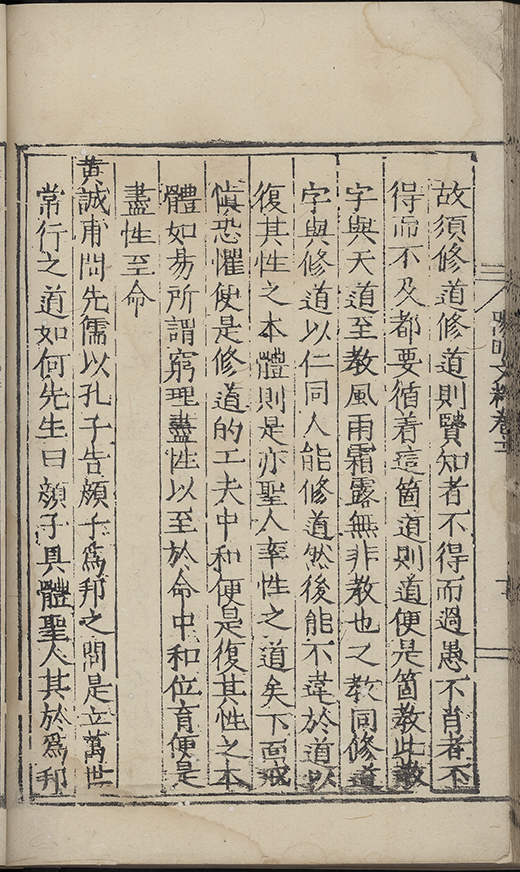 故須修道修道則賢知者不得而過愚不肖者不
得而不及都要循着這箇道則道便是箇教此教
字與天道至教風雨霜露無非教也之教同修道
字與修道以仁同人能修道然後能不違於道以
復其性之本體則是亦聖人率性之道矣下面戒
慎恐懼便是修道的工夫中和便是復其性之本
體如易所謂窮理盡性以至於命中和位育便是
盡性至命
黄誠甫問先儒以孔子告顔子爲邦之問是立萬世
常行之道如何先生曰顔子具體聖人其於爲邦